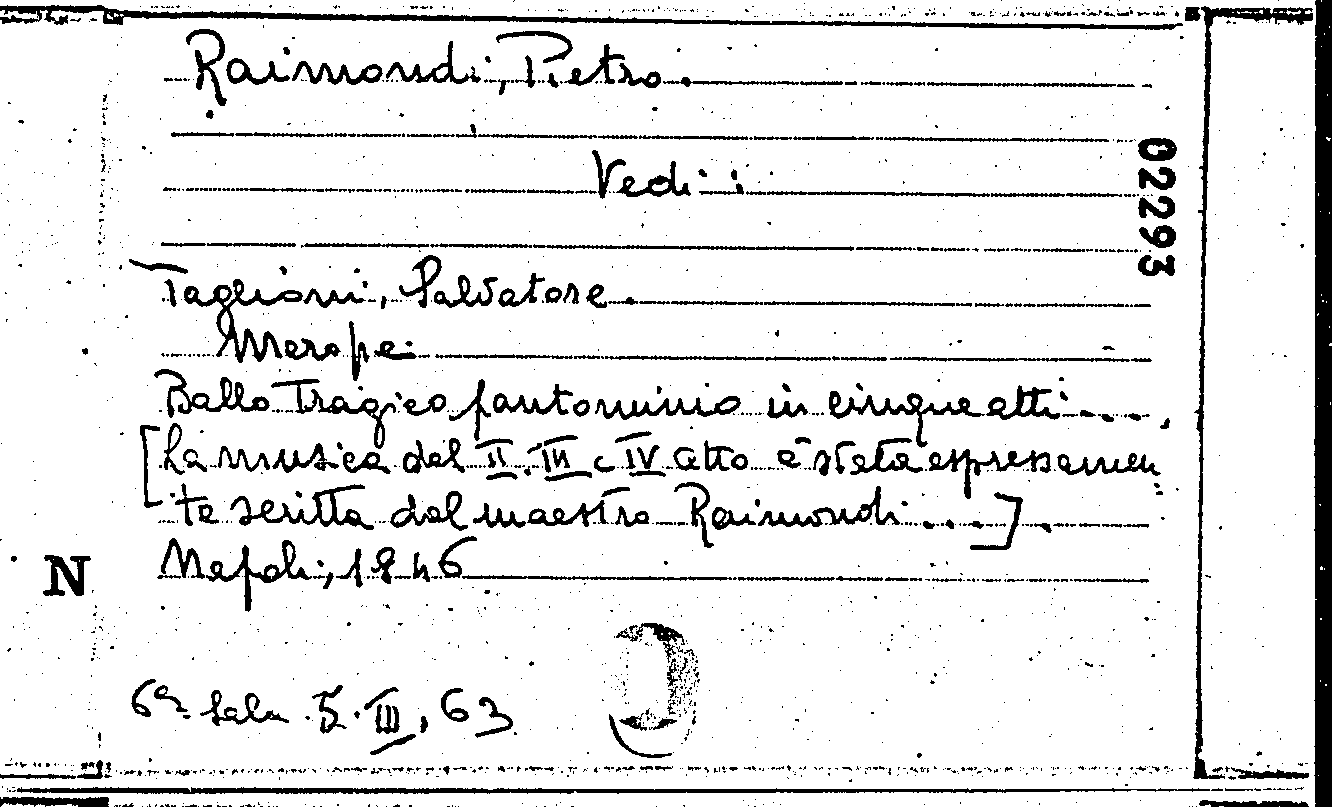 Raimondi, Pietro.
Vedi:
02293
Taglioni, Salvatore.
Merope.
Ballo Tragico pantomimo in cinque atti....,
[La musica del II. III e IV atto è stata espressamen
te scritta dal maestro Raimondi....].
Napoli, 1846
N
6a Sala 5. III, 63